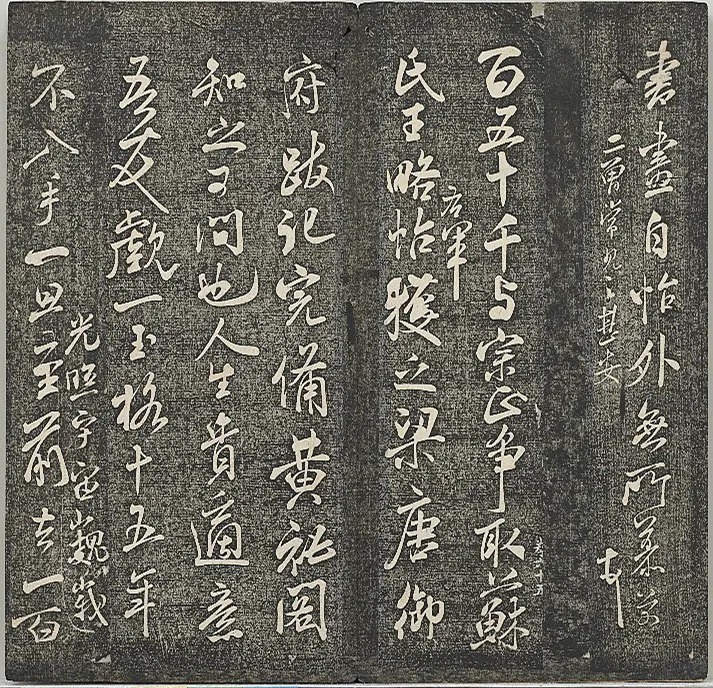 書畫自怡外無所慕
二曾常見之甚安 芾
百五十千与宗正爭取蘇
右軍
氏王略帖獲之梁唐御
府跋記完備黃祕閣
知之可問也人生貴適意
吾友覷一玉格十五年
光照宇宙巍峨
不入手一旦至前去一百